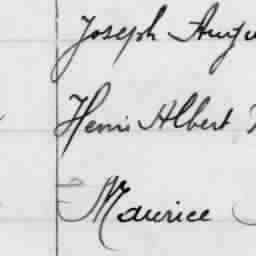 Joseph Augu
Henri Albert
Maurice